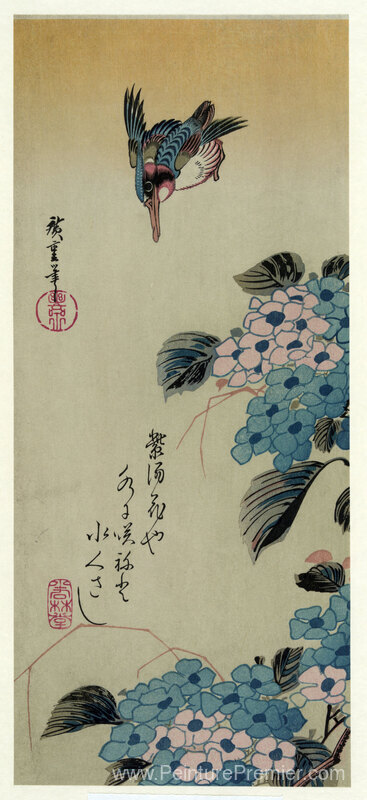 廣重筆
紫陽花や
水に咲ねと
水くさし
www.PeinturePremier.com